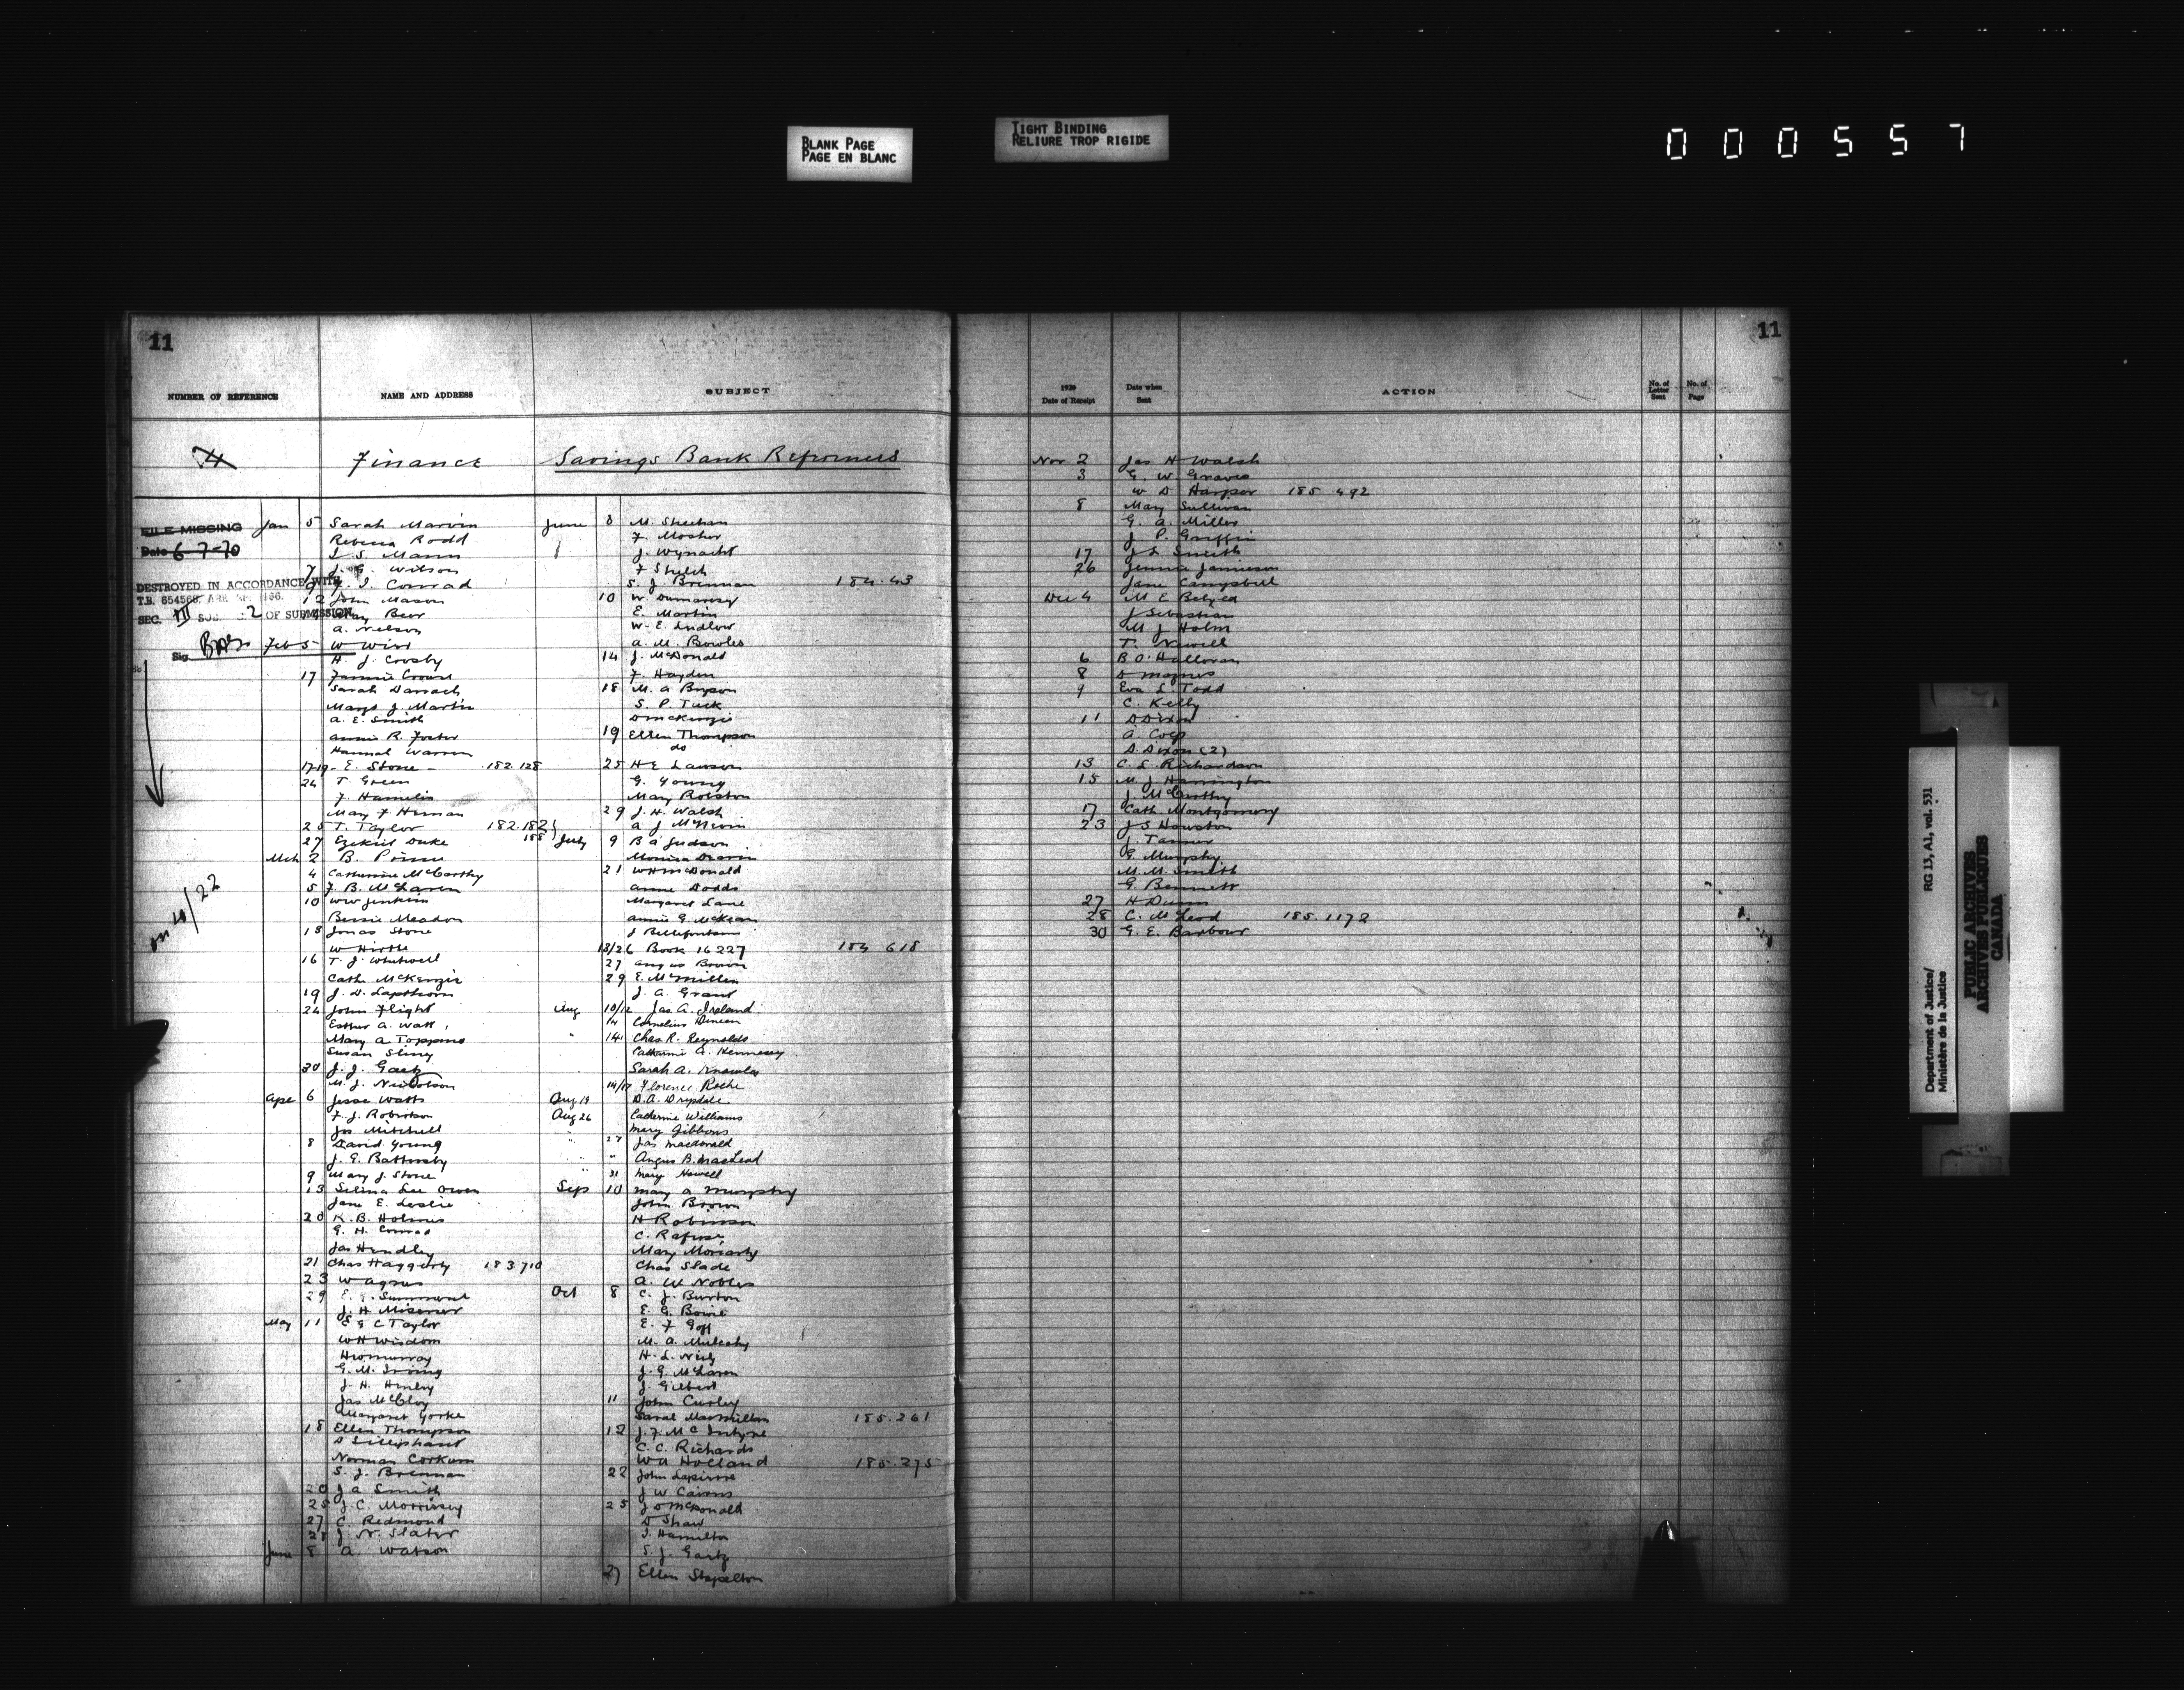 BLANK PAGE
PAGE EN BLANC
TIGHT BINDING
RELIURE TROP RIGIDE
000557
11
NUMBER OF REFERENCE
NAME AND ADDRESS
SUBJECT
4
Finance
Savings Bank
FILE MISSING
Date 6-7-70
DESTROYED IN ACCORDANCE WITH
T.B. 654566
SEC. VII SUB. 2 OF SUBMISSION
Sig.
Jan 5 Sarah Marvin
Rebecca Rodd
L S. Mann
7 J. G. Wilson
9 J. I. Conrad
12 John Mason
Beer
A. Nelson
Feb 5 W Wise
H. J. Crosby
17 Fannie
Sarah Darrach
Margt J. Martin
A. E. Smith
Annie R. Foster
Hannah Warren
17-19- E. Stone - 182.128
24 T. Green
F. Hamelin
Mary F Heman
25 T. Taylor 182.182
188
27 Ezekiel Duke
Mch 2 B. Prime
4 Catherine McCarthy
5 J. B. McLaren
10 WW Jenkins
Bessie Meador
13 Jonas Stone
W Hirtle
16 T. J. Whitwell
Cath McKenzie
19 J. D. Lapthorn
24 John Flight
Esther A. Watt
Mary A Toppins
Susan
30 J. J. Gaetz
M. J. Nicholson
Ape 6 Jesse Watts
F. J. Robertson
Jas Mitchell
8 David Young
J. G. Battersby
9 Mary J. Stone
13 Selina Lee Owen
Jane E. Leslie
20 K. B. Holmes
G. H. Conrad
Jas Hendley
21 Chas Haggerty 183.710
23 W Agnes
29 E. J. Summers
J. H. Misener
May 11 E G C Taylor
WH Wisdom
H W Murray
G. M. Irving
J. H. Henley
Jas McCloy
Margaret Yorke
18 Ellen Thompson
Norman Corkum
S. J. Brennan
20 J A Smith
25 J. C. Morrissey
27 C. Redmond
28 J. N. Slater
June 8 A Watson
on 4/22
June 8 M. Sheehan
F. Mosher
J. Wynacht
F Stelch
S. J. Brennan 184.43
10 W Dumaresq
E. Martin
W. E. Ludlow
A. M. Bowles
14 J. McDonald
F. Hayden
18 M. A Bryson
S. P. Tuck
D McKenzie
19 Ellen Thompson
do
25 H E Lawson
G. Young
Mary Rolston
29 J. H. Walsh
A J McNevin
July 9 B A Judson
Monica
21 WH McDonald
Annie Dodds
Margaret Lane
Annie G. McKean
J Bellefontaine
13/26 Book 16227 184 618
27 Angus Brown
29 E. McMillen
J. A. Grant
Aug 10/12 Jas A. Ireland
14 Cornelius Duncan
14 Chas R. Reynolds
Catherine A. Hennessy
Sarah A. Knowles
14/17 Florence Roche
Aug 19 D. A. Drysdale
Aug 26 Catherine Williams
Mary Gibbons
27 Jas Macdonald
" Angus B. MacLeod
31 Mary Howell
Sep 10 Mary A Murphy
John Brown
H Robinson
C. Rafuse
Mary Moriarty
Chas Slade
A. W Nobles
Oct 8 C. J. Burton
E. G. Bowie
E. F Goff
M. A. Mulcahy
H. L. Neily
J. G. McLaren
J. Gilbert
11 John Curley
Sarah MacMillan 185.261
12 J. F. McIntyre
C. C. Richards
WA Holland 185.275
22 John Lapierre
J W Cairns
25 J D McDonald
D Shaw
I. Hamilton
S. J. Gaetz
27 Ellen Stapelton
11
1920
Date of Receipt
Date when
Sent
ACTION
No. of
Letter
Sent
No. of
Page
Nov 2 Jas H Walsh
3 G. W Graves
W D Harper 185 492
8 Mary Sullivan
G. A. Miller
J P. Griffin
17 J L Smith
26 Jennie Jamieson
Jane Campbell
Dec 4 M E Belyea
J Sebastian
M J Holm
T. Newell
6 B O'Halloran
8 D Magnes
9 Eva L. Todd
C. Kelly
11 D Dixon
A. Coep
D. Dixon (2)
13 C. L. Richardson
15 M. J Harrington
J. McCarthy
17 Cath Montgomery
23 J S Houston
J. Tanner
G. Murphy
M. M. Smith
G. Bennett
27 H Dunn
28 C. McLeod 185.1172
30 G. E. Barbour
Department of Justice/
Ministère de la Justice
RG 13, A1, vol. 531
PUBLIC ARCHIVES
ARCHIVES PUBLIQUES
CANADA